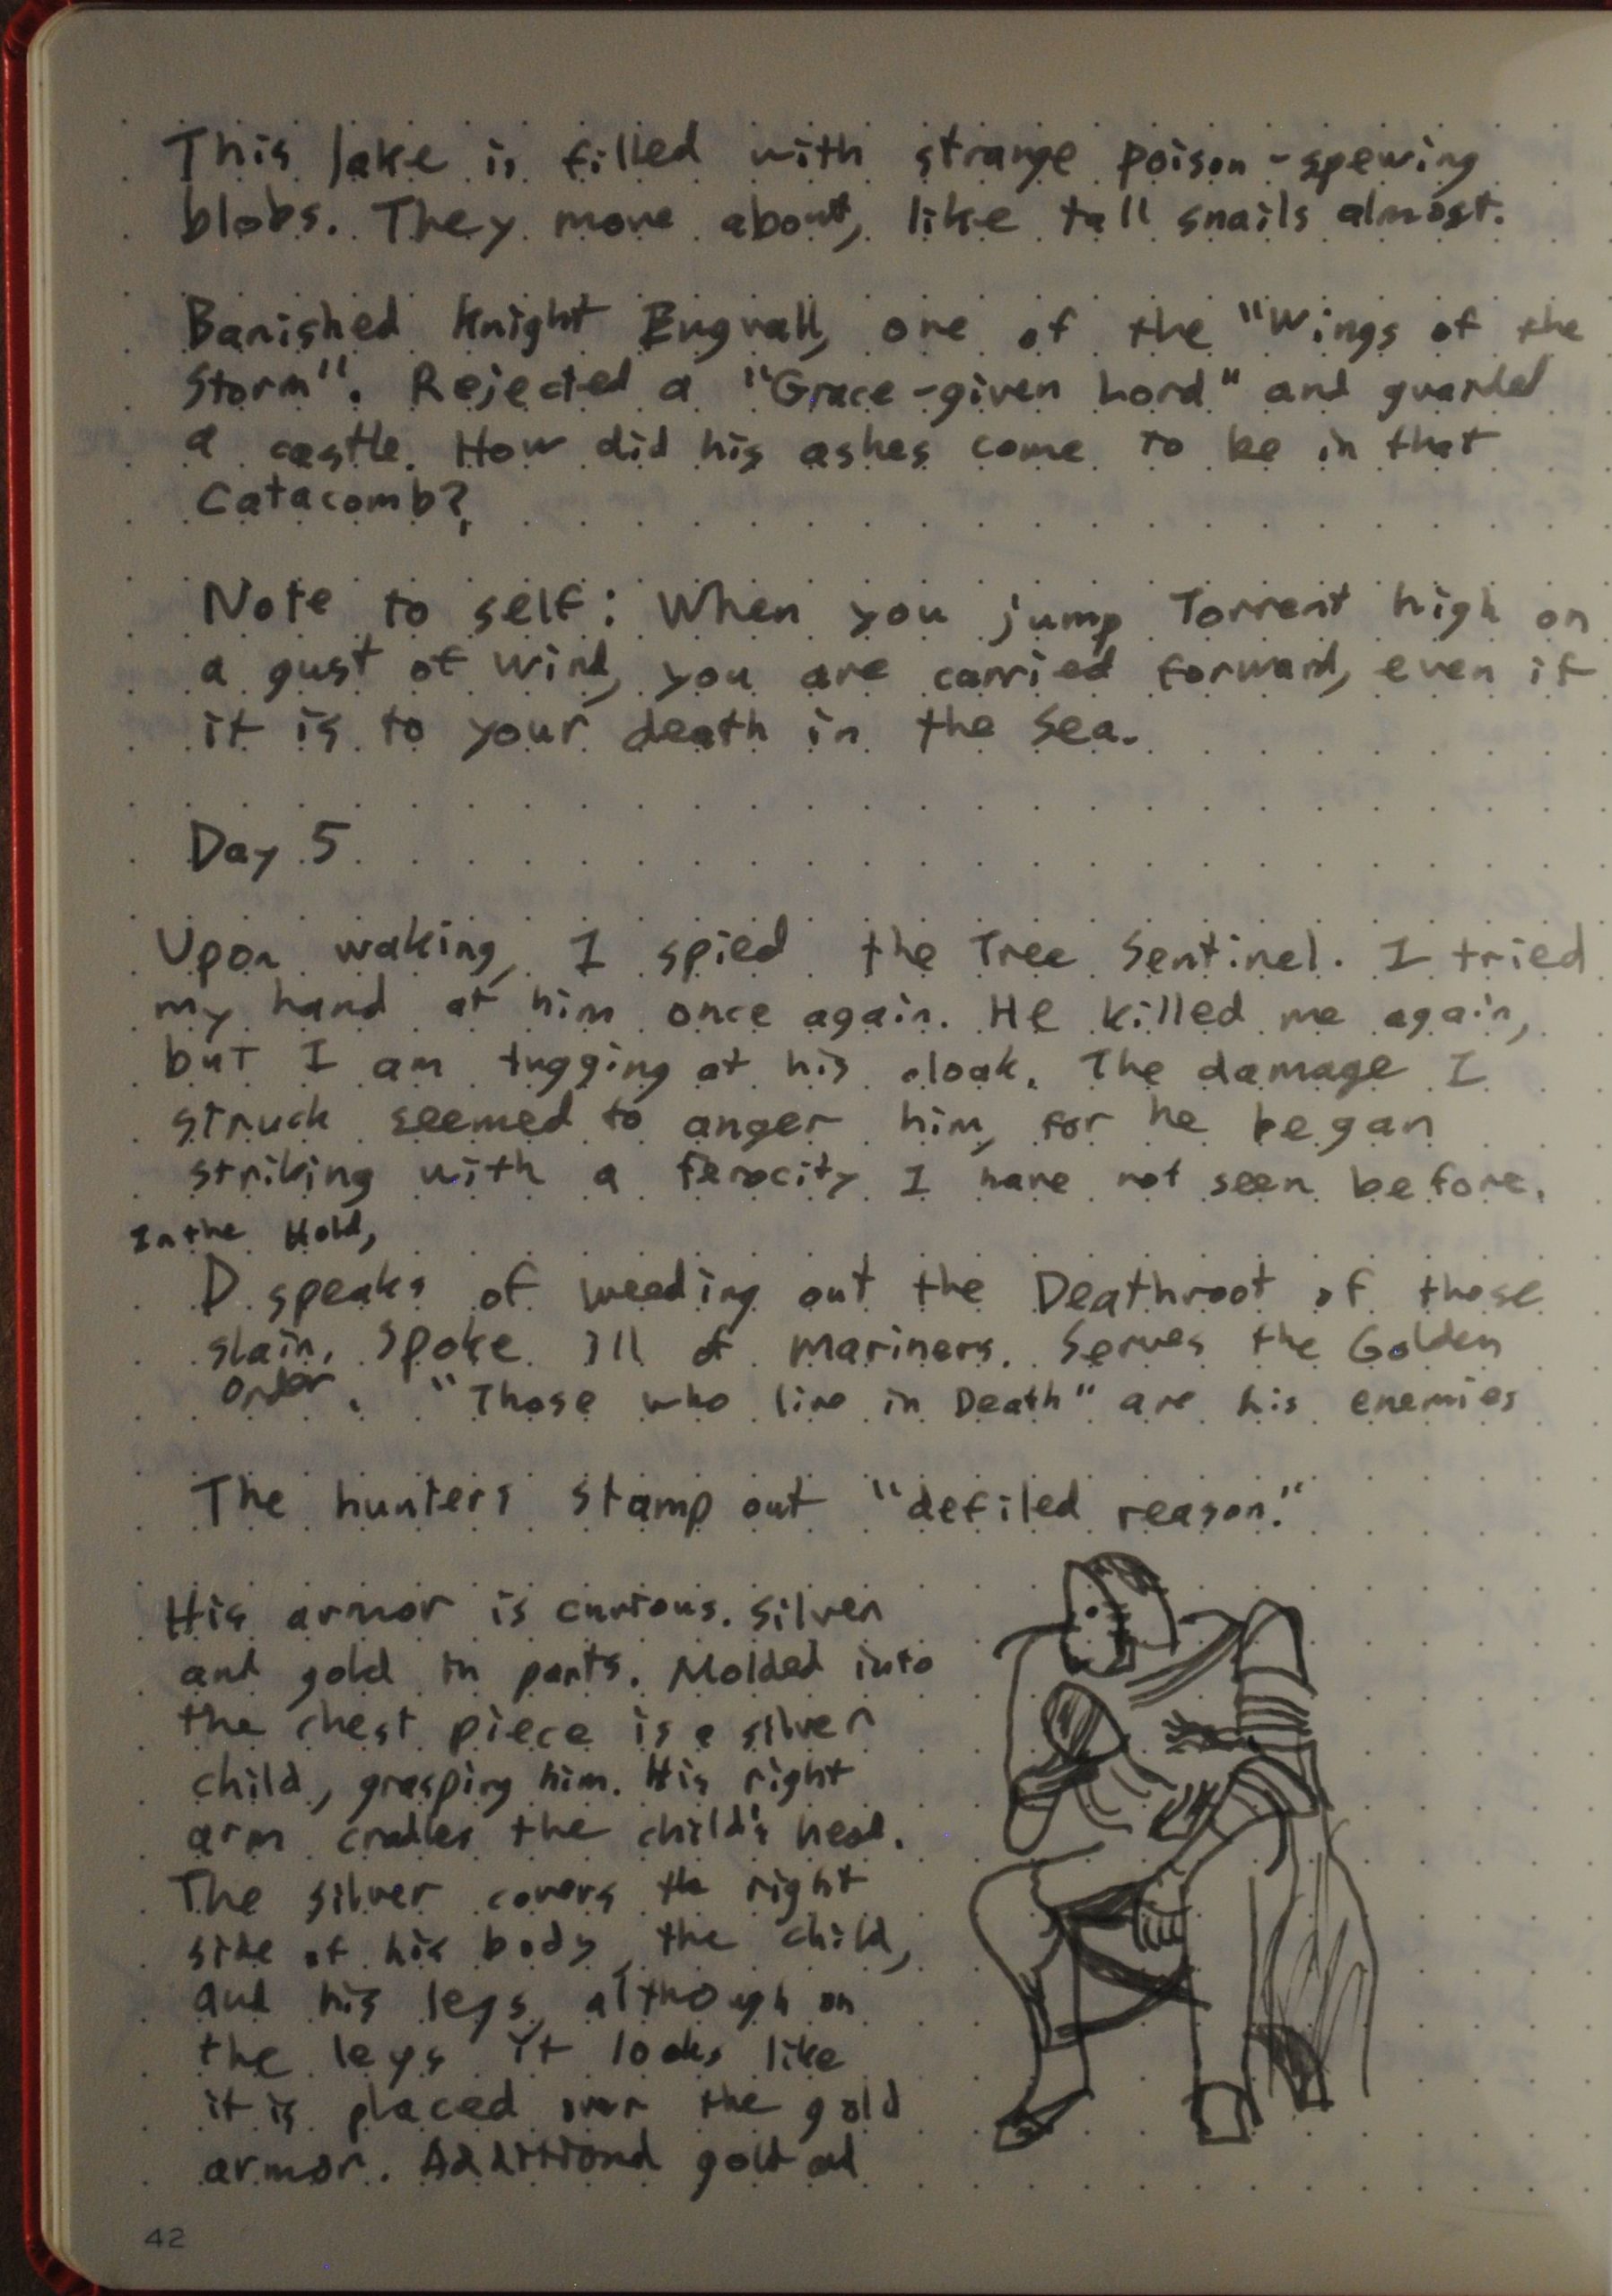 This lake is filled with strange poison-spewing
blobs. They move about, like tall snails almost.
Banished Knight Engvall, one of the "Wings of the
Storm". Rejected a "Grace-given Lord" and guarded
a castle. How did his ashes come to be in that
Catacomb?
Note to self: When you jump Torrent high on
a gust of wind, you are carried forward, even if
it is to your death in the sea.
Day 5
Upon waking, I spied the Tree Sentinel. I tried
my hand at him once again. He killed me again,
but I am tugging at his cloak. The damage I
struck seemed to anger him, for he began
striking with a ferocity I have not seen before.
In the Hold,
D speaks of weeding out the Deathroot of those
slain. Spoke ill of Mariners. Serves the Golden
Order. "Those who live in Death" are his enemies
The hunters stamp out "defiled reason."
His armor is curious. Silver
and gold in parts. Molded into
the chest piece is a silver
child, grasping him. His right
arm cradles the child's head.
The silver covers the right
side of his body, the child,
and his legs, although on
the legs it looks like
it is placed over the gold
armor. Additional gold
42